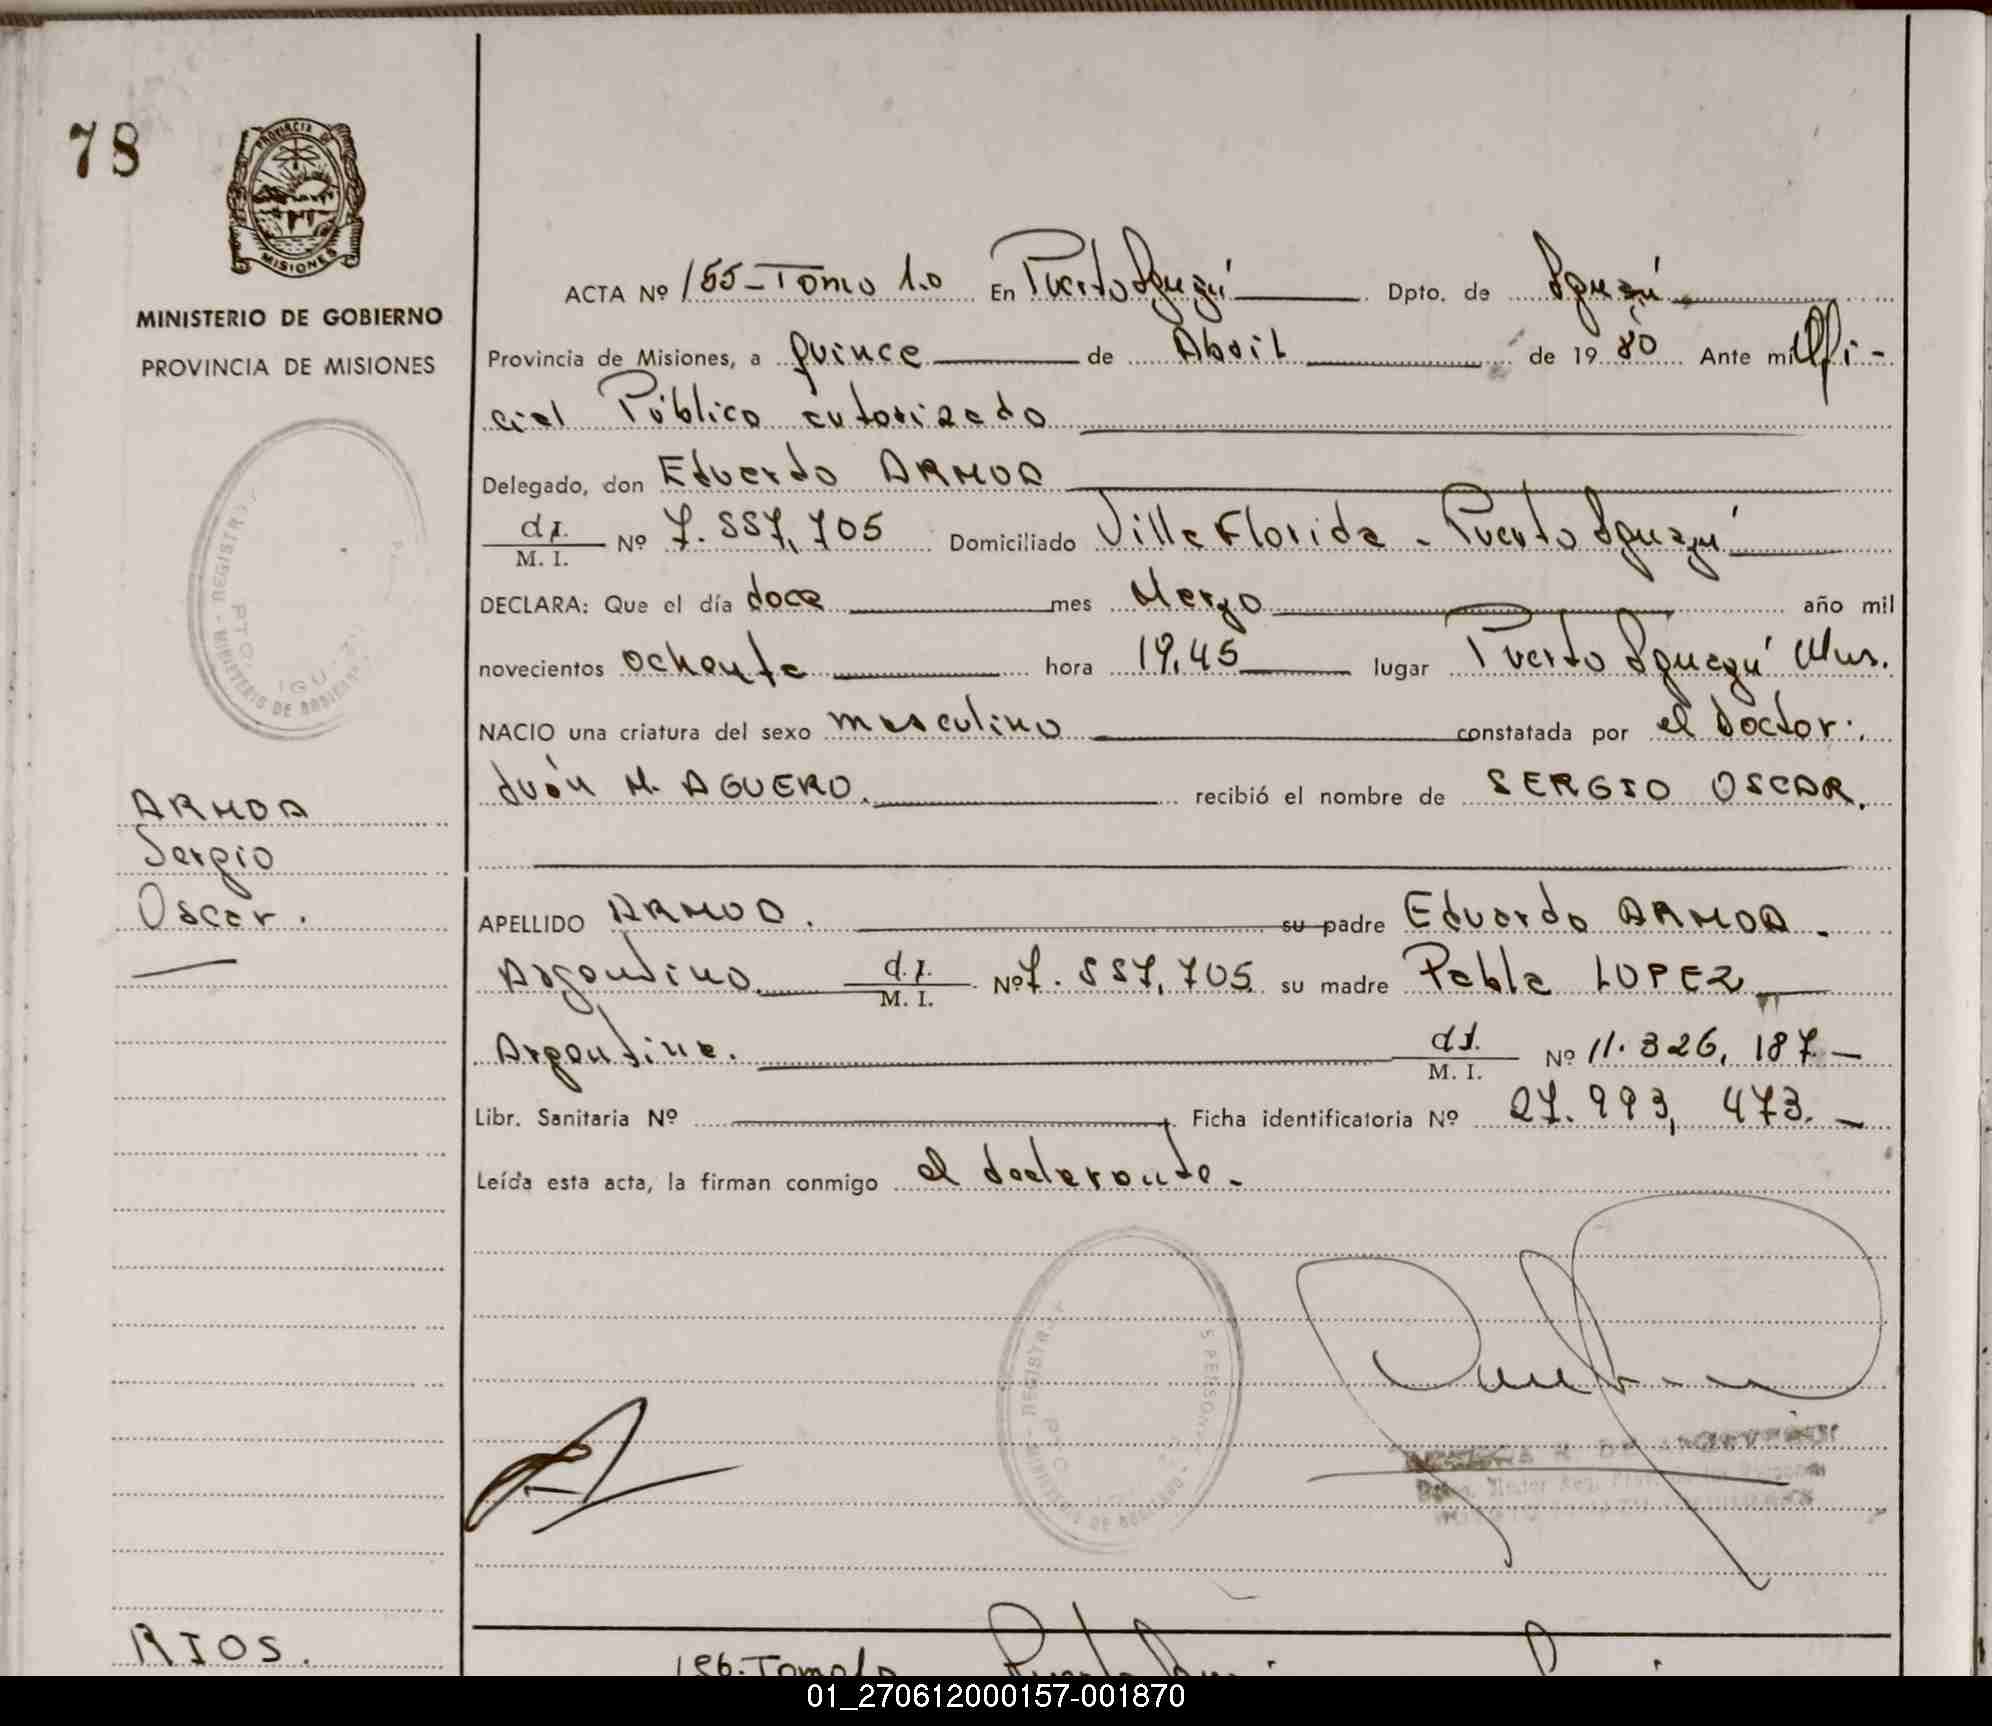 78
PROVINCIA DE
MISIONES
MINISTERIO DE GOBIERNO
PROVINCIA DE MISIONES
ACTA Nº 155-Tomo 1.o En Puerto Iguazú Dpto. de Iguazú
Provincia de Misiones, a quince de Abril de 19 80 Ante mí Ofi-
cial Público autorizado
Delegado, don Eduardo ARMOA
d.I. M. I. Nº 7.557,705 Domiciliado Villa Florida - Puerto Iguazú
DECLARA: Que el día doce mes Marzo año mil
novecientos ochenta hora 19,45 lugar Puerto Iguazú Mnes.
NACIO una criatura del sexo masculino constatada por el Doctor:
Juán M. AGUERO. recibió el nombre de SERGIO OSCAR.
ARMOA
Sergio
Oscar.
APELLIDO ARMOA. su padre Eduardo ARMOA.
Argentino. d.I. M. I. Nº 7.557,705 su madre Pabla LOPEZ
Argentina. d.I. M. I. Nº 11.326,187.-
Libr. Sanitaria Nº Ficha identificatoria Nº 27.993,473.-
Leída esta acta, la firman conmigo el declarante.-
RIOS.
156-Tomo 1o Puerto
01_270612000157-001870